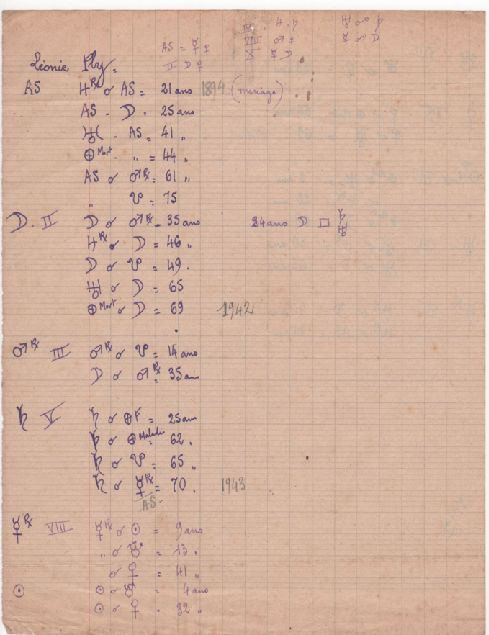 AS = ☿ ♀
II ☽ ♀
Léonie
AS ♃℞ ☌ AS = 21 ans 1894 (mariage)
AS - ☽ = 25 ans
♅ - AS = 41 "
⊕ Mort " = 44 "
AS ☌ ♂℞ = 61 "
" ☋ = 75
☽. II ☽ ☌ ♂℞ = 35 ans 84 ans ☽ □ ♅
♃℞ ☌ ☽ = 46 "
☽ ☌ ☋ = 49 .
♅ ☌ ☽ = 65
⊕ Mort ☌ ☽ = 69 1942
♂℞ III ♂℞ ☌ ☋ = 14 ans
☽ ☌ ♂℞ = 35 ans
♄ V ♄ ☌ ⊕F = 25 ans
♄ ☌ ⊕ Maladie = 62 .
♄ ☌ ☋ = 65 "
♄ ☌ ☿℞ = 70 . 1943
AS -
☿℞ VIII ☿℞ ☌ ☉ = 9 ans
" ☌ = 13 "
☌ ♀ = 41 "
☉ ☉ ☌ = 4 ans
☉ ☌ ♀ = 32 "